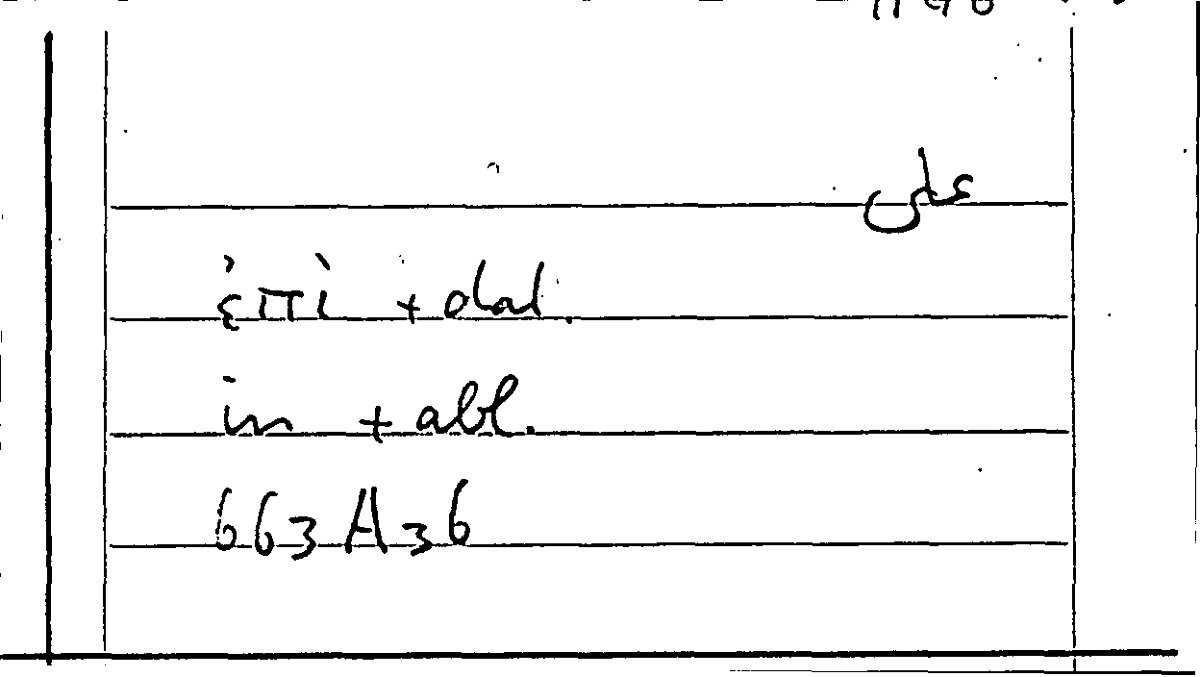 على
ἐπὶ + dat.
in + abl.
663 A 36